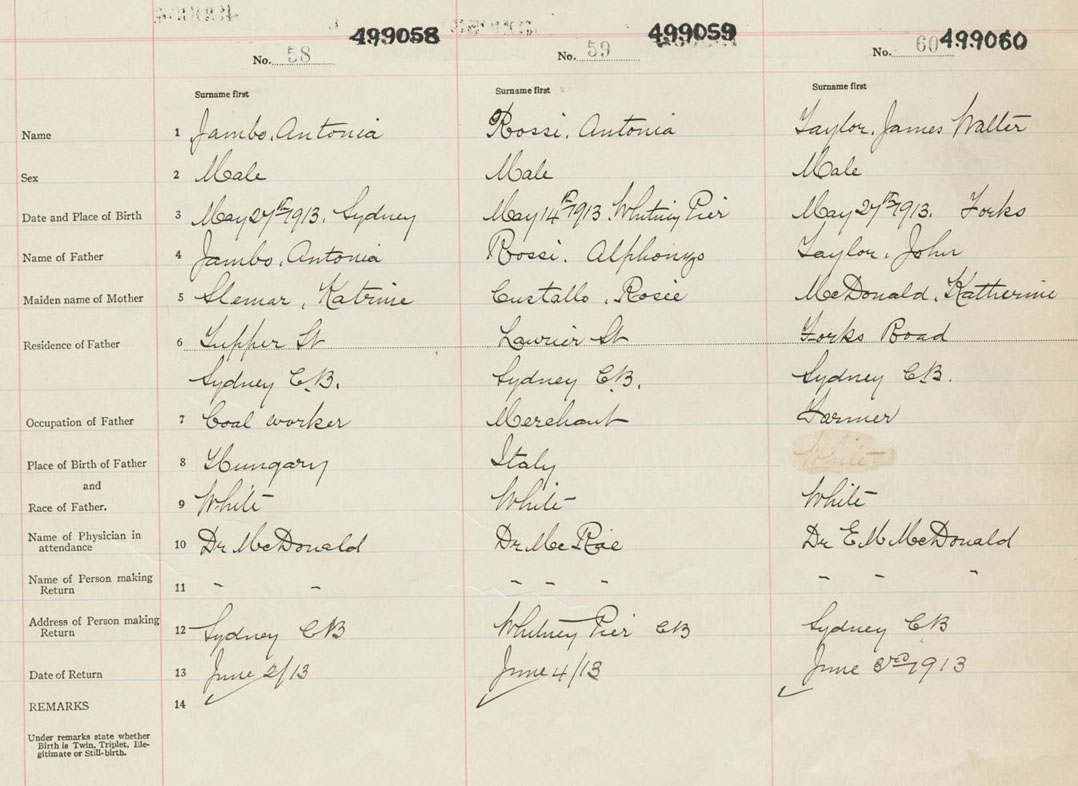 499058 499059 499060
No. 58 No. 59 No. 60
Surname first Surname first Surname first
Name 1 Jambo, Antonia Rossi, Antonia Taylor, James Walter
Sex 2 Male Male Male
Date and Place of Birth 3 May 27th 1913. Sydney May 14th 1913. Whitney Pier May 27th 1913. Forks
Name of Father 4 Jambo, Antonia Rossi, Alphonzo Taylor, John
Maiden name of Mother 5 Slemar, Katrine Custallo, Rosie McDonald, Katherine
Residence of Father 6 Tupper St Laurier St Forks Road
Sydney C.B. Sydney C.B. Sydney C.B.
Occupation of Father 7 Coal worker Merchant Farmer
Place of Birth of Father 8 Hungary Italy White
and
Race of Father. 9 White White White
Name of Physician in
attendance 10 Dr McDonald Dr McRae Dr E M McDonald
Name of Person making
Return 11 " " " " " " " "
Address of Person making
Return 12 Sydney CB Whitney Pier CB Sydney CB
Date of Return 13 June 2/13 June 4/13 June 3rd 1913
REMARKS 14
Under remarks state whether
Birth is Twin, Triplet, Ille-
gitimate or Still-birth.